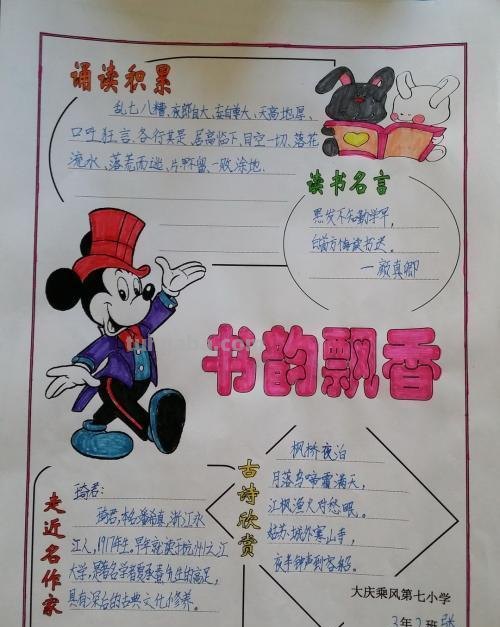 诵读积累
乱七八糟、夜郎自大、妄自尊大、天高地厚、
口吐狂言、各行其是、居高临下、目空一切、落花
流水、落荒而逃、片甲不留、一败涂地.
读书名言
黑发不知勤学早,
白首方悔读书迟。
一颜真卿
书韵飘香
走近名作家
琦君:
琦君,本名潘希真,浙江永
江人,1917年生,早年就读于杭州之江
大学,是著名学者夏承焘先生的高足,
具有深合的古典文化修养。
古诗欣赏
枫桥夜泊
月落乌啼霜满天,
江枫渔火对愁眠。
姑苏城外寒山寺,
夜半钟声到客船。
大庆乘风第七小学
3年2班